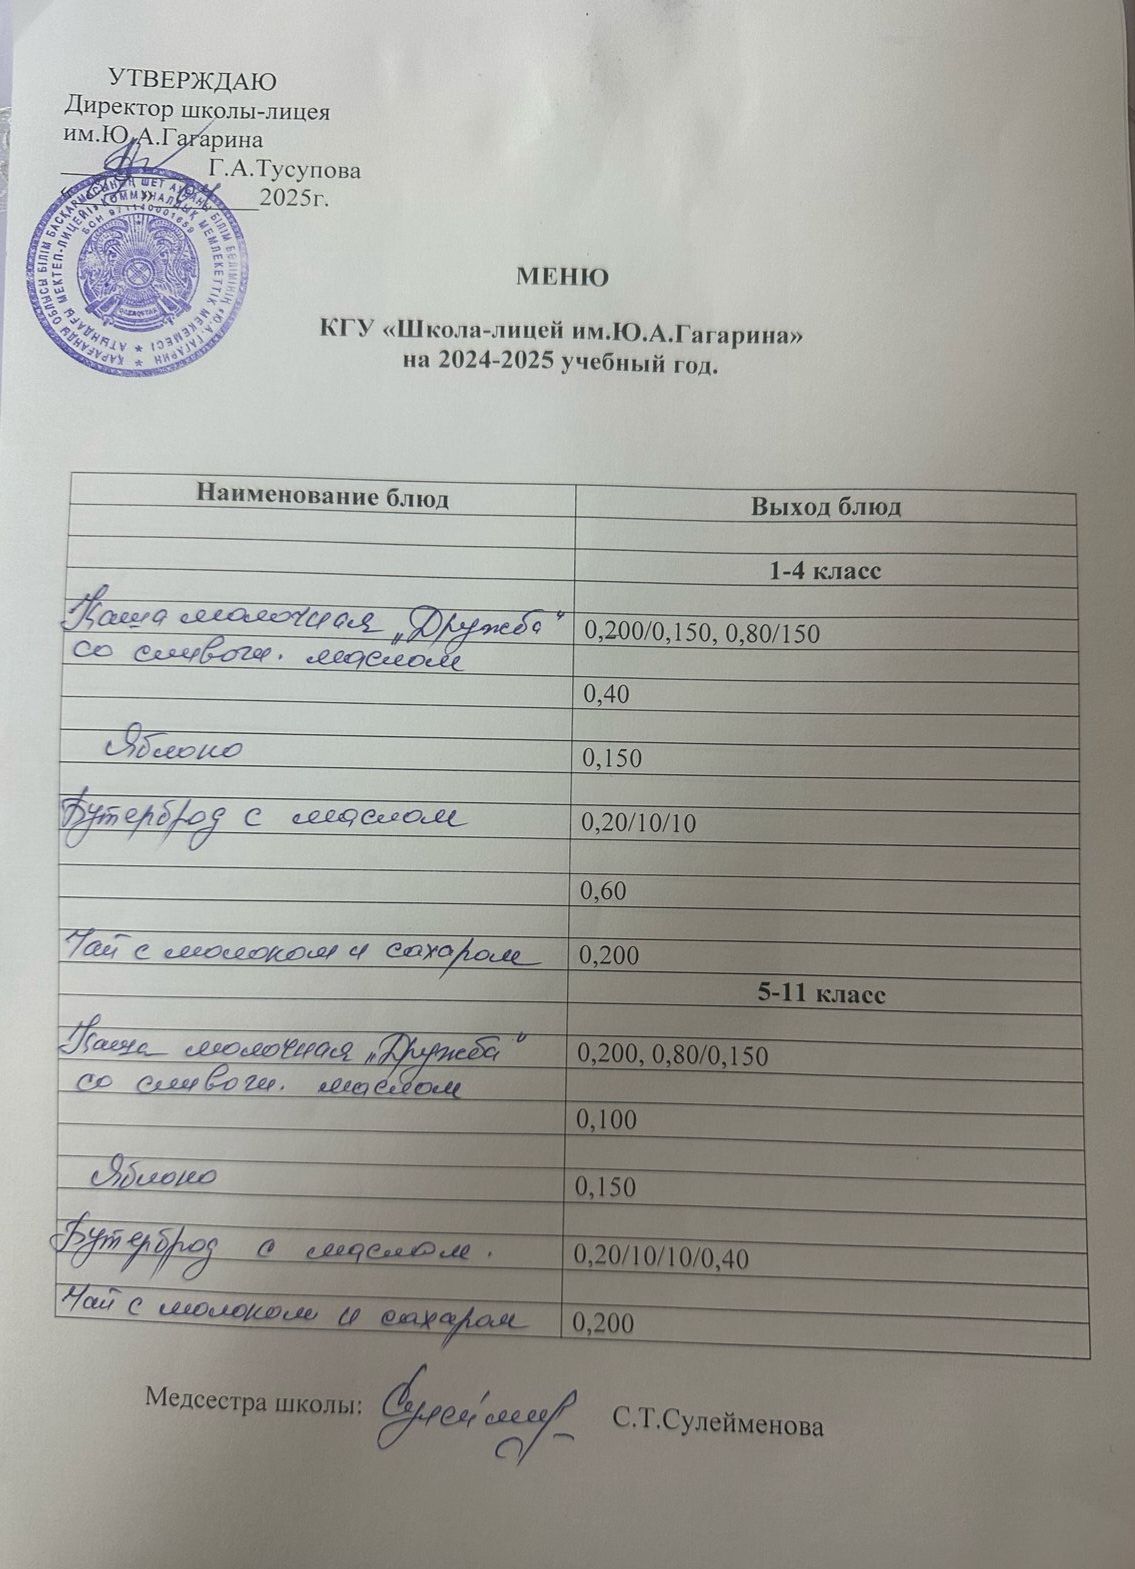 УТВЕРЖДАЮ
Директор школы-лицея
им.Ю.А.Гагарина
Г.А.Тусупова
2025г.
ҚАРАҒАНДЫ ОБЛЫСЫ БІЛІМ БАСҚАРМАСЫНЫҢ ШЕТ АУДАНЫ БІЛІМ БӨЛІМІНІҢ «Ю.А.ГАГАРИН
АТЫНДАҒЫ МЕКТЕП-ЛИЦЕЙІ» КОММУНАЛДЫҚ МЕМЛЕКЕТТІК МЕКЕМЕСІ
БСН 971140001659
ҚАЗАҚСТАН
МЕНЮ
КГУ «Школа-лицей им.Ю.А.Гагарина»
на 2024-2025 учебный год.
Наименование блюд Выход блюд
1-4 класс
Каша молочная „Дружба“ 0,200/0,150, 0,80/150
со сливочн. маслом
0,40
Яблоко 0,150
Бутерброд с маслом 0,20/10/10
0,60
Чай с молоком и сахаром 0,200
5-11 класс
Каша молочная „Дружба“ 0,200, 0,80/0,150
со сливочн. маслом
0,100
Яблоко 0,150
Бутерброд с маслом. 0,20/10/10/0,40
Чай с молоком и сахаром 0,200
Медсестра школы: С.Т.Сулейменова